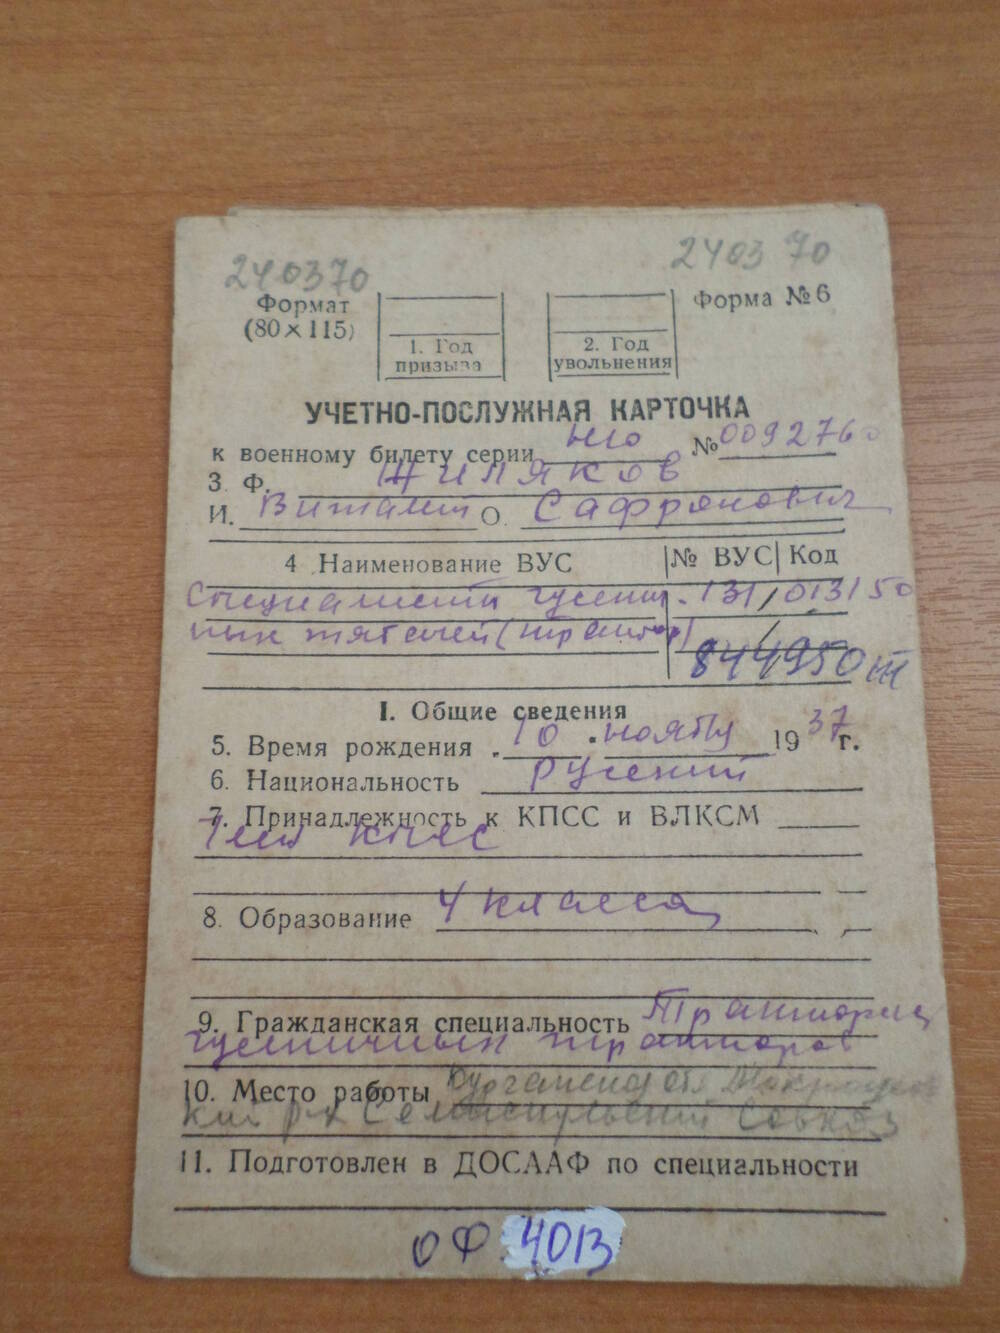 240370 240370
Формат (80×115) Форма № 6
1. Год призыва 2. Год увольнения
УЧЕТНО-ПОСЛУЖНАЯ КАРТОЧКА
к военному билету серии НЮ № 0092760
3. Ф. Жиляков
И. Виталий О. Сафронович
4 Наименование ВУС № ВУС Код
Специалисты гусенич- 131 / 013150
ных тягачей (трактор) 844950 т
I. Общие сведения
5. Время рождения 10 ноября 1937 г.
6. Национальность русский
7. Принадлежность к КПСС и ВЛКСМ
Член КПСС
8. Образование 4 класса
9. Гражданская специальность Тракторист
гусеничных тракторов
10. Место работы Курганская обл
кий р-н совхоз
11. Подготовлен в ДОСААФ по специальности
ОФ 4013